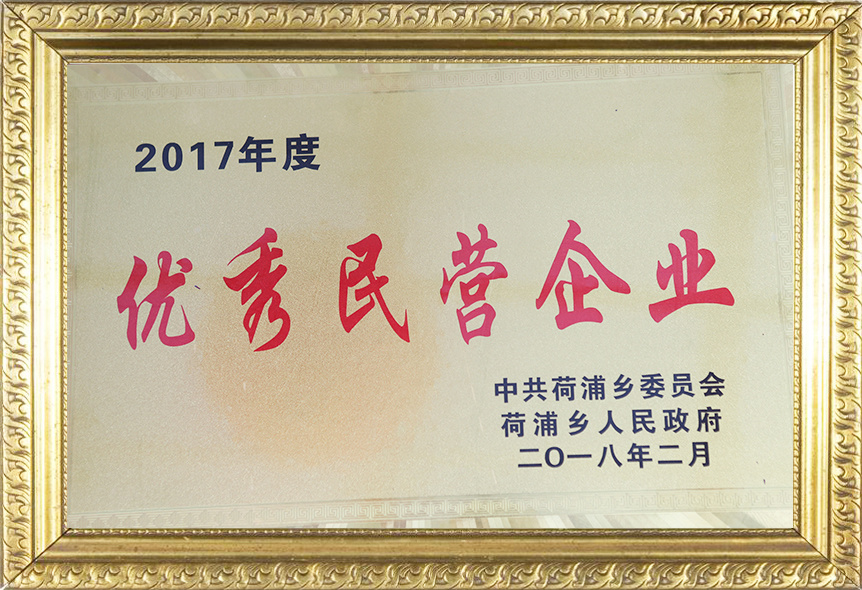 2017年度
优秀民营企业
中共荷浦乡委员会
荷浦乡人民政府
二O一八年二月